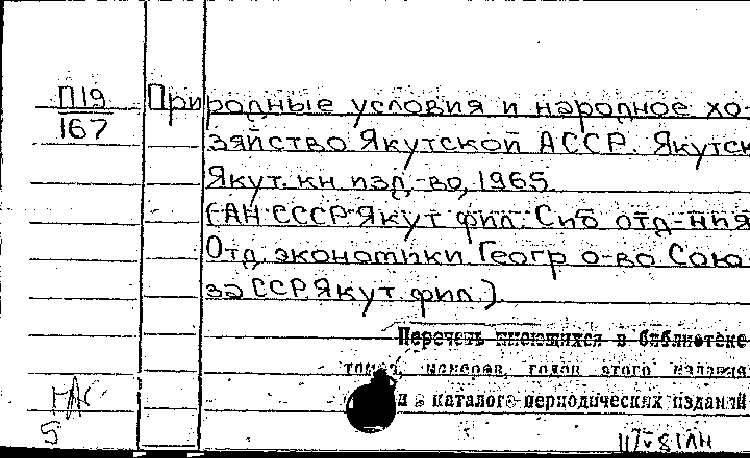 П19
167
Природные условия и народное хо-
зяйство Якутской АССР. Якутск
Якут. кн. изд-во, 1965
(АН СССР Якут. фил. Сиб. отд-ния
Отд. экономики. Геогр. о-во Сою-
за ССР Якут. фил.)
Перечень имеющихся в библиотеке
томов, номеров, годов этого издания
в каталоге периодических изданий
5